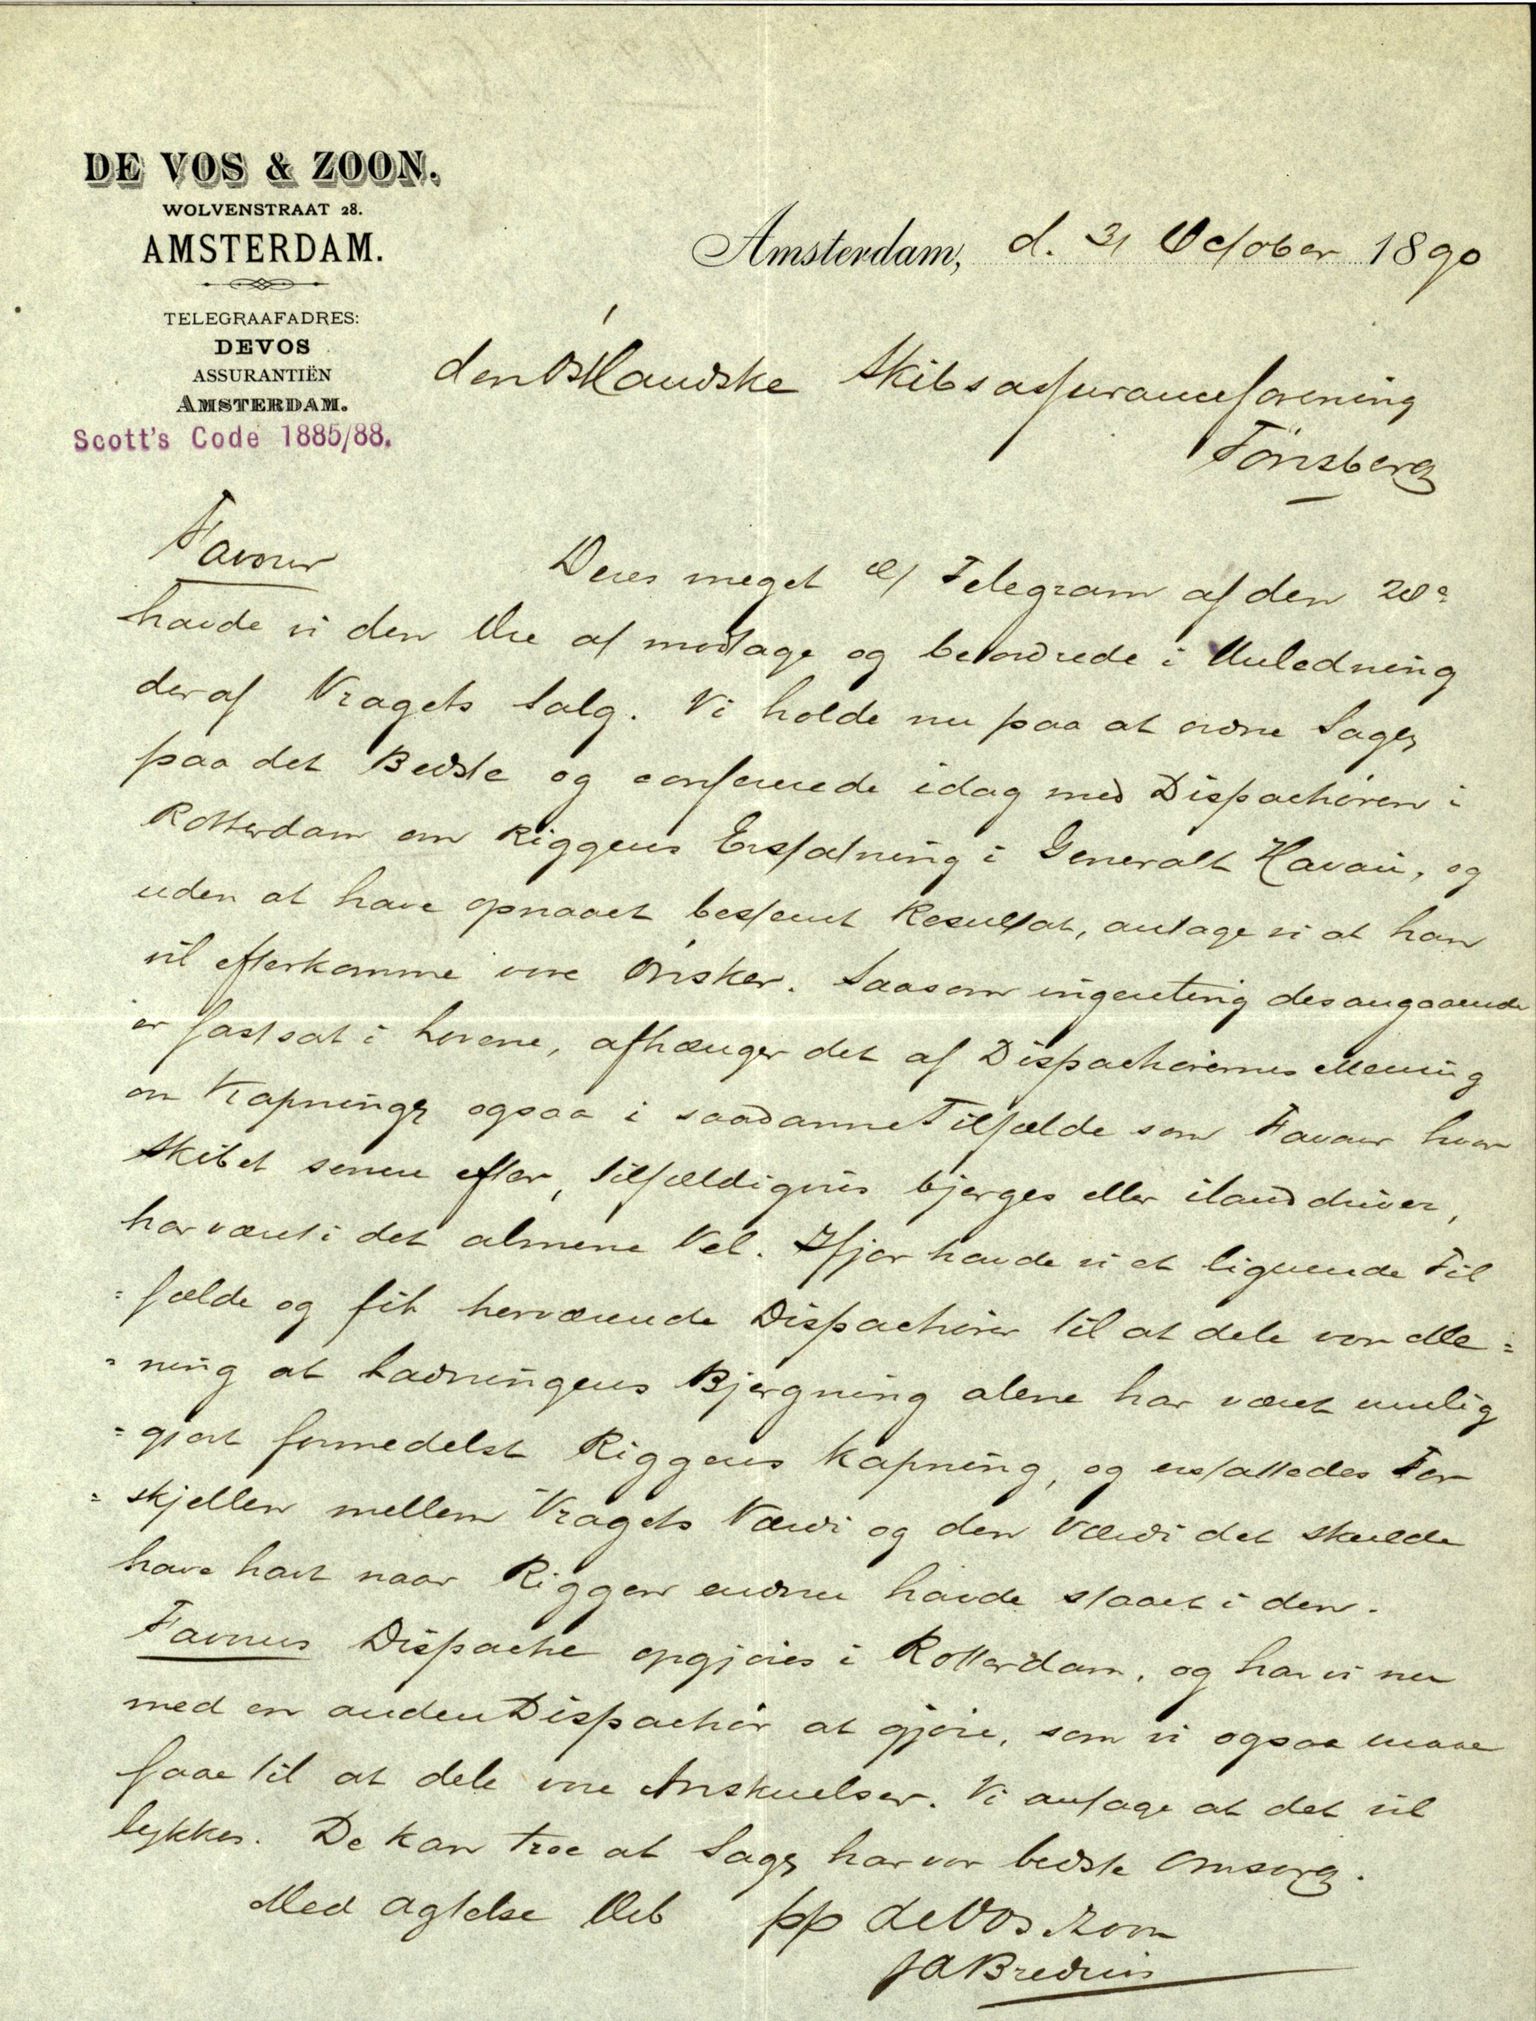 DE VOS & ZOON.
WOLVENSTRAAT 28.
AMSTERDAM.
TELEGRAAFADRES:
DEVOS
ASSURANTIËN
AMSTERDAM.
Scott's Code 1885/88.
Amsterdam, d. 31 October 1890
den Østlandske Skibsassuranceforening
Tønsberg
Favour Deres meget Telegram af den
havde vi den Ære af modtage og beordrede i Anledning
deraf Vragets Salg. Vi holde nu paa at ordne Sagen
paa det Bedste og confererede idag med Dispachøren i
Rotterdam om Riggens Erstatning i Generalt Havari, og
uden at have opnaaet bestemt Resultat, antage vi at han
vil efterkomme vore Ønsker. Saasom ingenting desangaaende
er fastsat i Lovene, afhænger det af Dispachørernes Mening
om Kapningen ogsaa i saadanne Tilfælde som Favour hvor
Skibet senere efter, tilfældigvis bjerges eller iland driver,
har været i det almene Vel. Ifjor havde vi et lignende Til
=fælde og fik herværende Dispachører til at dele vor Me=
=ning at Ladningens Bjergning alene har været mulig
=gjort formedelst Riggens Kapning, og erstattedes For
=skjellen mellem Vragets Værdi og den Værdi det skulde
have havt naar Riggen endnu havde staaet i den.
Favours Dispache opgjøres i Rotterdam, og har vi nu
med en anden Dispachør at gjøre, som vi ogsaa maae
faae til at dele vore Anskuelser. Vi antage at det vil
lykkes. De kan troe at Sagen har vor bedste Omsorg.
Med Agtelse Deb pp de Vos & Zoon
JA Bredius